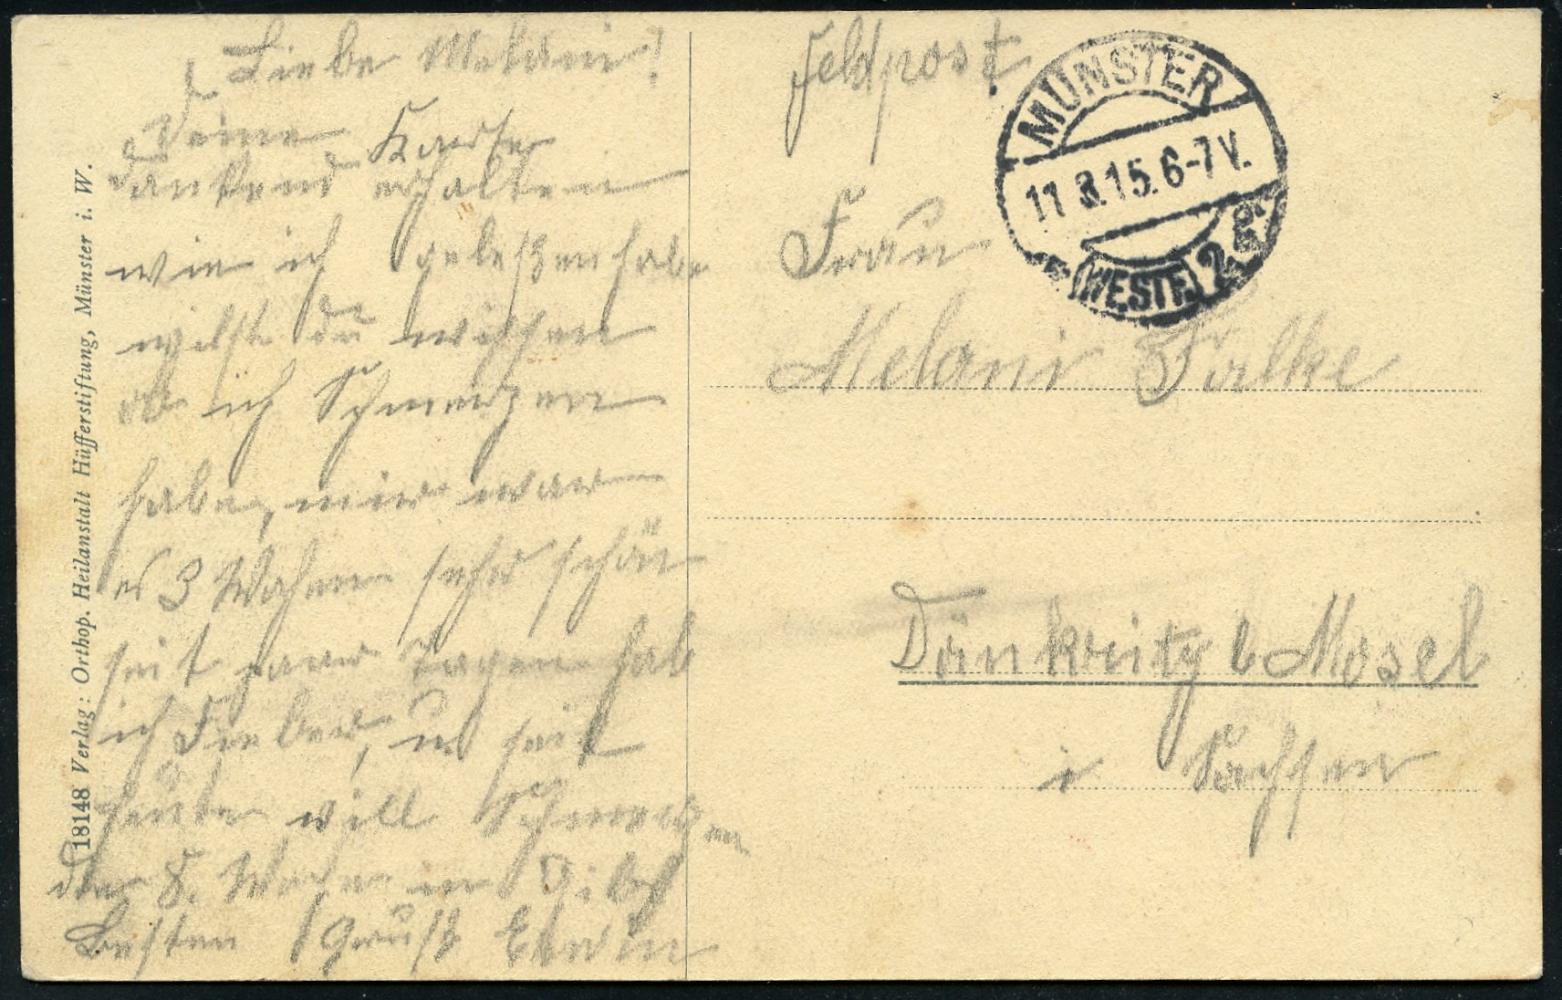 Liebe Melani!
Deine Karte
dankend erhalten
wie ich geleßen habe
wilst du wissen
ob ich Schmerzen
habe, mir war
es 3 Wochen sehr schön
seit paar Tagen hab
ich Fieber, u seit
heute will Schmerzen
der 8. Woche in
Besten Gruß Erwin
18148 Verlag: Orthop. Heilanstalt Hüfferstiftung, Münster i. W.
Feldpost
MÜNSTER
11.3.15.6-7V.
(WESTF.) 2
Frau
Melani Falke
Dänkritz b Mosel
i Sachsen